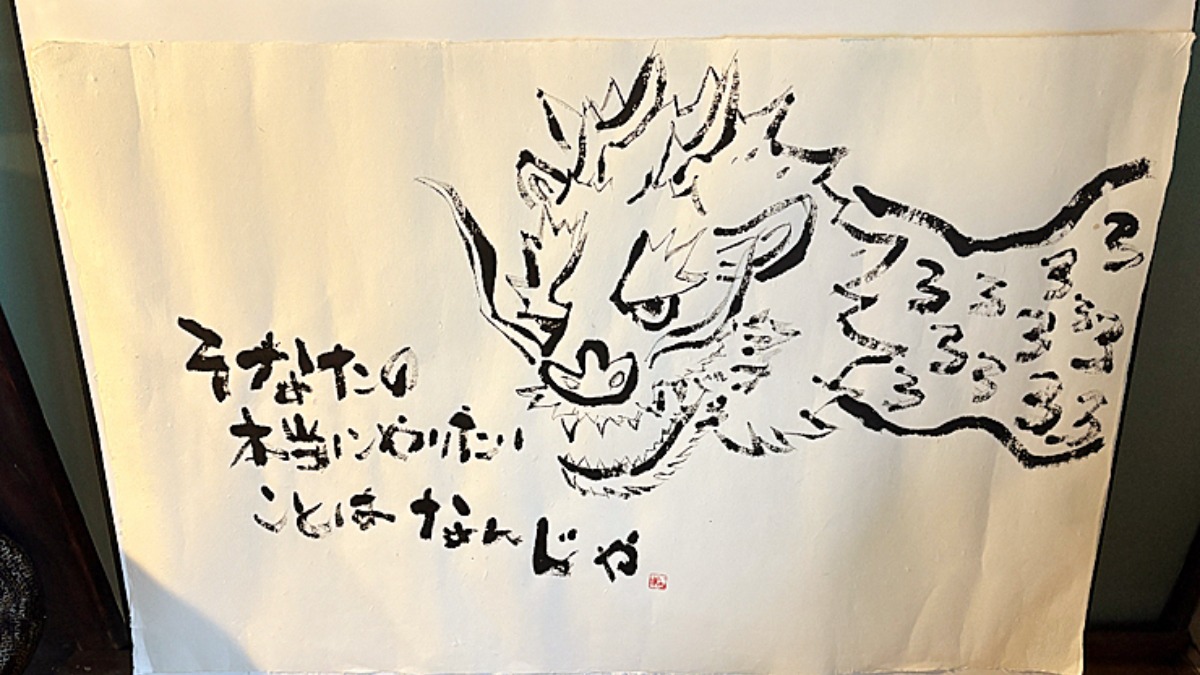 そなたの
本当にやりたい
ことはなんじゃ